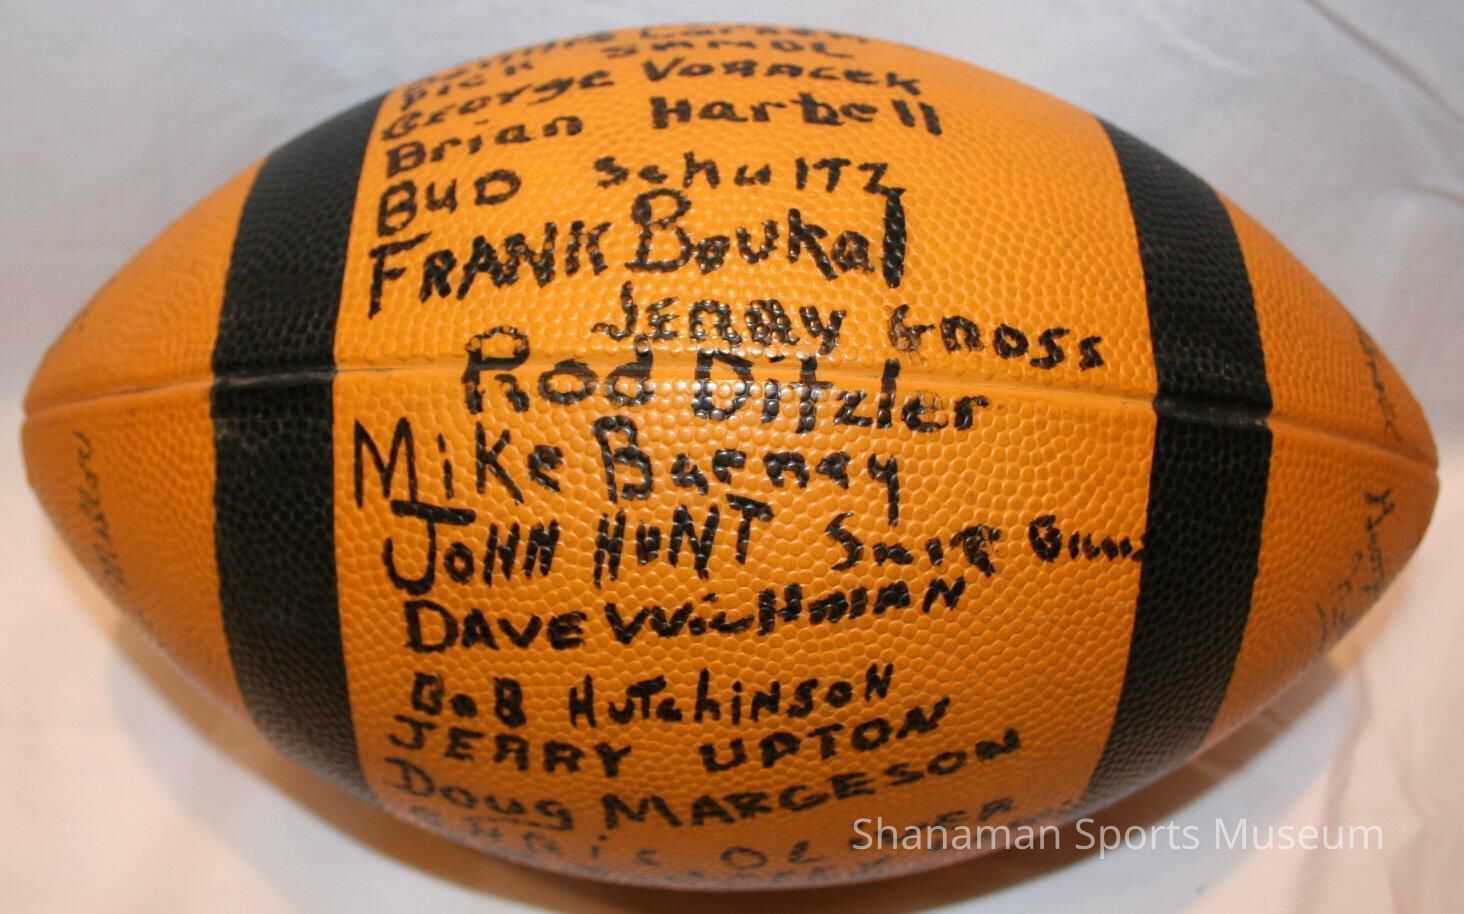 DICK SAMOL
George VORACEK
Brian Hartzell
BUD SchulTZ
FRANK Boukal
JERRY GROSS
Rod Ditzler
Mike Barnay
JOHN HUNT
DAVE WICHMAN
BOB HUTchiNSON
JERRY UPTON
DOUG MARGESON
CHRIS
Shanaman Sports Museum